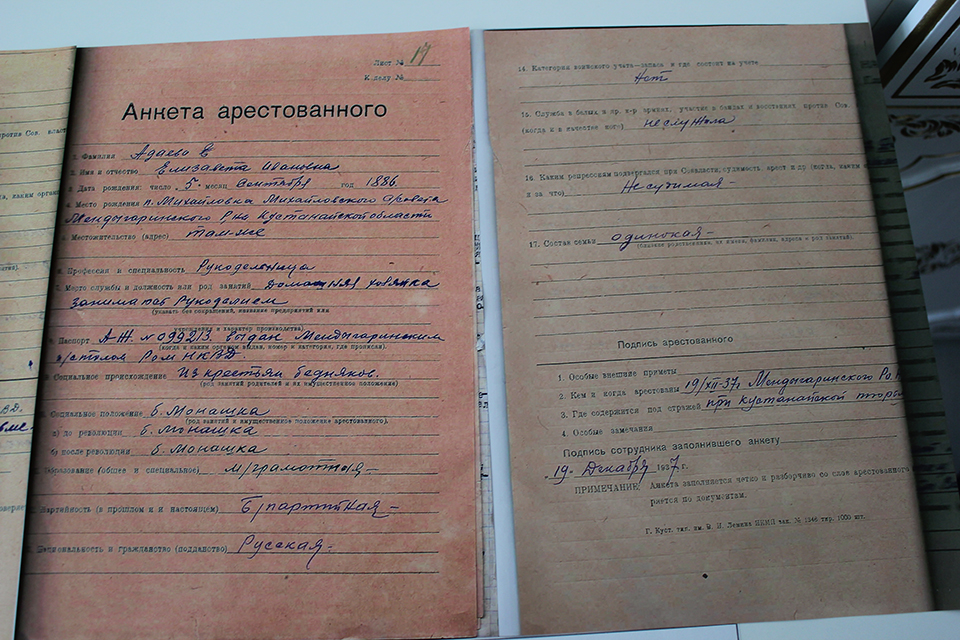 Лист № 17
К делу №
Анкета арестованного
1. Фамилия Адаева Е
2. Имя и отчество Елизавета Ивановна
3. Дата рождения: число 5 месяц Сентября год 1886
4. Место рождения п. Михайловка Михайловского с/совета
Мендыгаринского Р/на Кустанайской области
5. Местожительство (адрес) там-же
6. Профессия и специальность Рукодельница
7. Место службы и должность или род занятий домашняя хозяйка
занималась Рукоделием
(указать без сокращений, название предприятия или
учреждения и характер производства)
Паспорт А.Ж. № 099213 выдан Мендыгаринским
(когда и каким органом выдан, номер и категория, где прописан).
РОМ НКВД.
Социальное происхождение Из крестьян бедняков.
(род занятий родителей и их имущественное положение)
Социальное положение б. Монашка
(род занятий и имущественное положение арестованного).
а) до революции б. Монашка
б) после революции б. Монашка
Образование (общее и специальное) м/грамотная –
Партийность (в прошлом и в настоящем) Б/партийная –
Национальность и гражданство (подданство) Русская –
14. Категория воинского учета-запаса и где состоит на учете
Нет
15. Служба в белых и др. к-р. армиях, участие в бандах и восстаниях против Сов.
(когда и в качестве кого) не служила
16. Каким репрессиям подвергался при Соввласти: судимость, арест и др.
и за что) Не судимая
17. Состав семьи одинокая –
(близкие родственники, их имена, фамилии, адреса и род занятий).
Подпись арестованного
1. Особые внешние приметы
2. Кем и когда арестованы 19/XII-37г Мендыгаринского Ро
3. Где содержится под стражей при Кустанайской
4. Особые замечания
Подпись сотрудника заполнившего анкету
19 – Декабря 1937 г.
ПРИМЕЧАНИЕ: Анкета заполняется четко и разборчиво со слов арестованного
ряется по документам.
Г. Куст. тип. им. В. И. Ленина зак. № 1346 тир. 1000 шт.
против Сов. влас